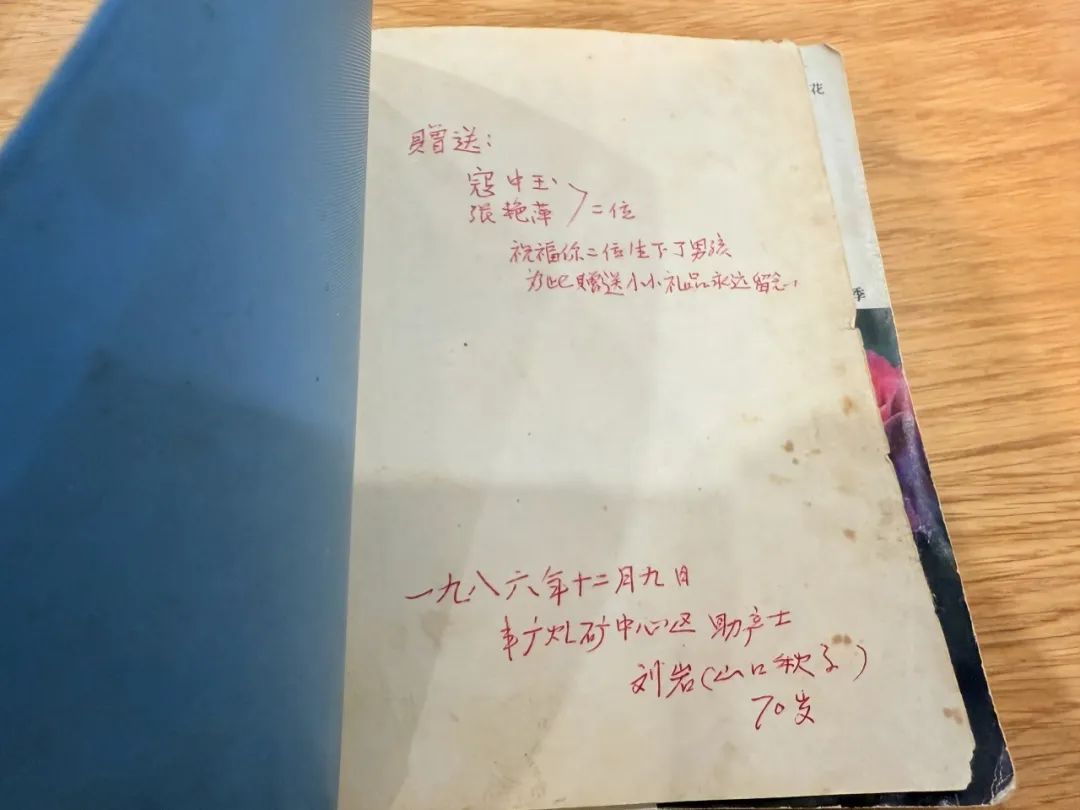 赠送:
寇中玉
张艳萍 〉二位
祝福你二位生下了男孩
为此赠送小小礼品永远留念.
一九八六年十二月九日
矿中心区 助产士
刘岩(山口秋子)
70岁
花
季